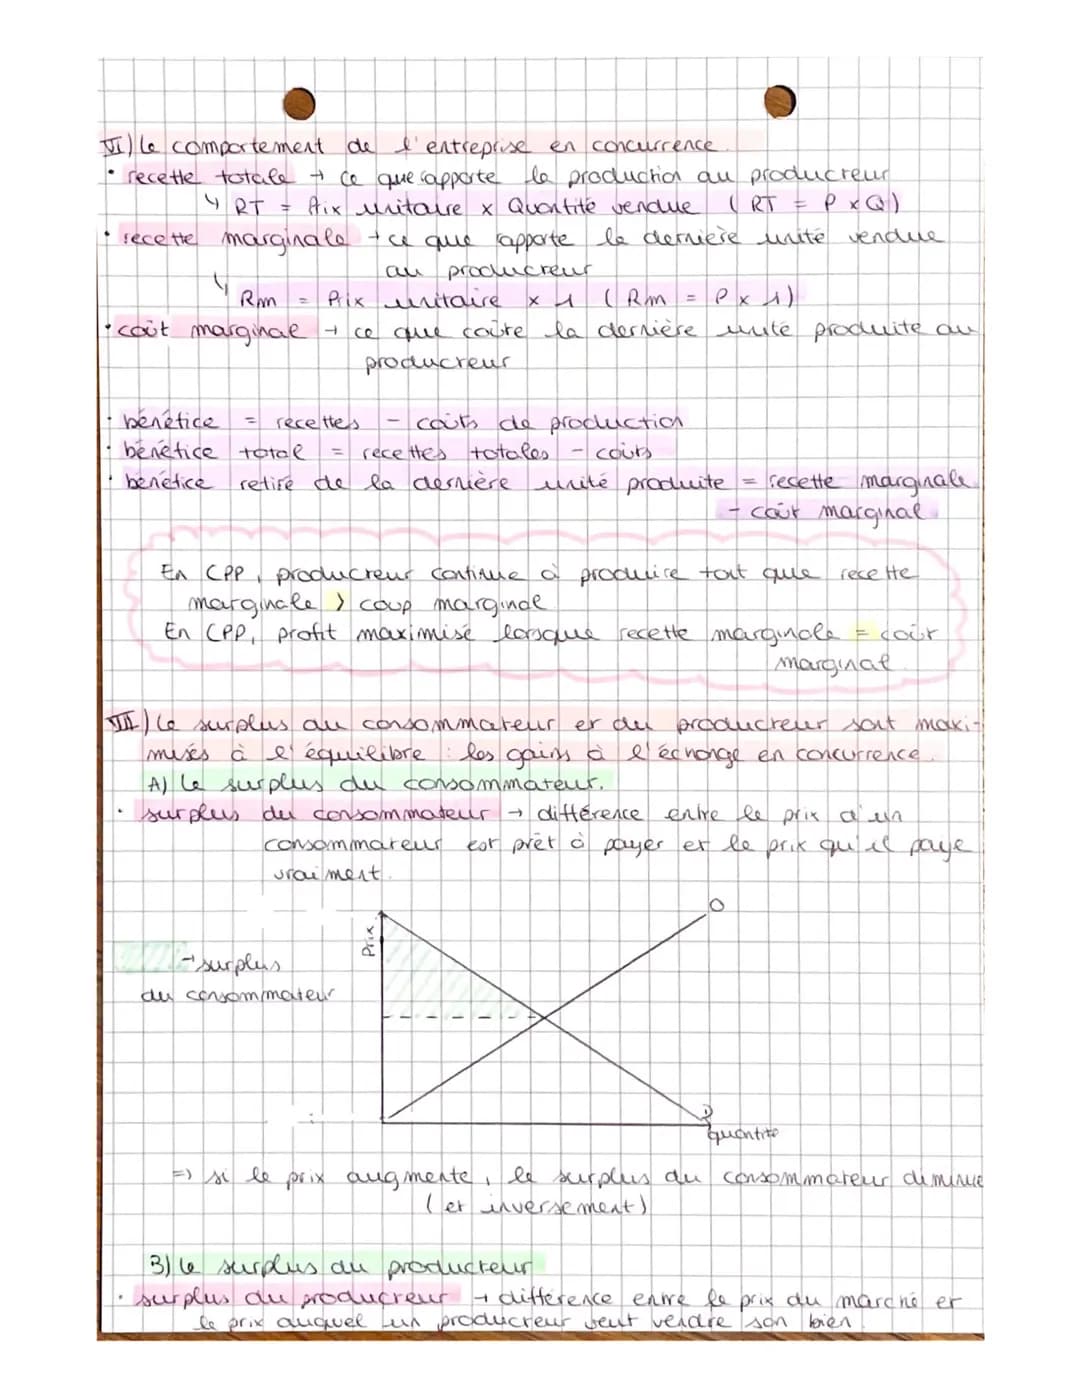 VI) Le comportement de l'entreprise en concurrence.
• recette totale → ce que rapporte la production au producteur
↳ RT = Prix unitaire x Quantité vendue ( RT = P x Q )
• recette marginale → ce que rapporte la dernière unité vendue
au producteur
↳ Rm = Prix unitaire x 1 ( Rm = P x 1 )
• coût marginal → ce que coûte la dernière unité produite au
producteur
• bénéfice = recettes - coûts de production
• bénéfice total = recettes totales - coûts
• bénéfice retiré de la dernière unité produite = recette marginale
- coût marginal
En CPP, producteur continue à produire tant que recette
marginale > coup marginal
En CPP, profit maximisé lorsque recette marginale = coût
marginal.
VII) Le surplus du consommateur et du producteur sont maxi-
misés à l'équilibre : les gains à l'échange en concurrence.
A) Le surplus du consommateur.
• surplus du consommateur → différence entre le prix d'un
consommateur est prêt à payer et le prix qu'il paye
vraiment.
Prix
O
→ surplus
du consommateur
D
quantité
=> si le prix augmente, le surplus du consommateur diminue
( et inversement )
B) Le surplus du producteur
• surplus du producteur → différence entre le prix du marché et
le prix auquel un producteur veut vendre son bien.